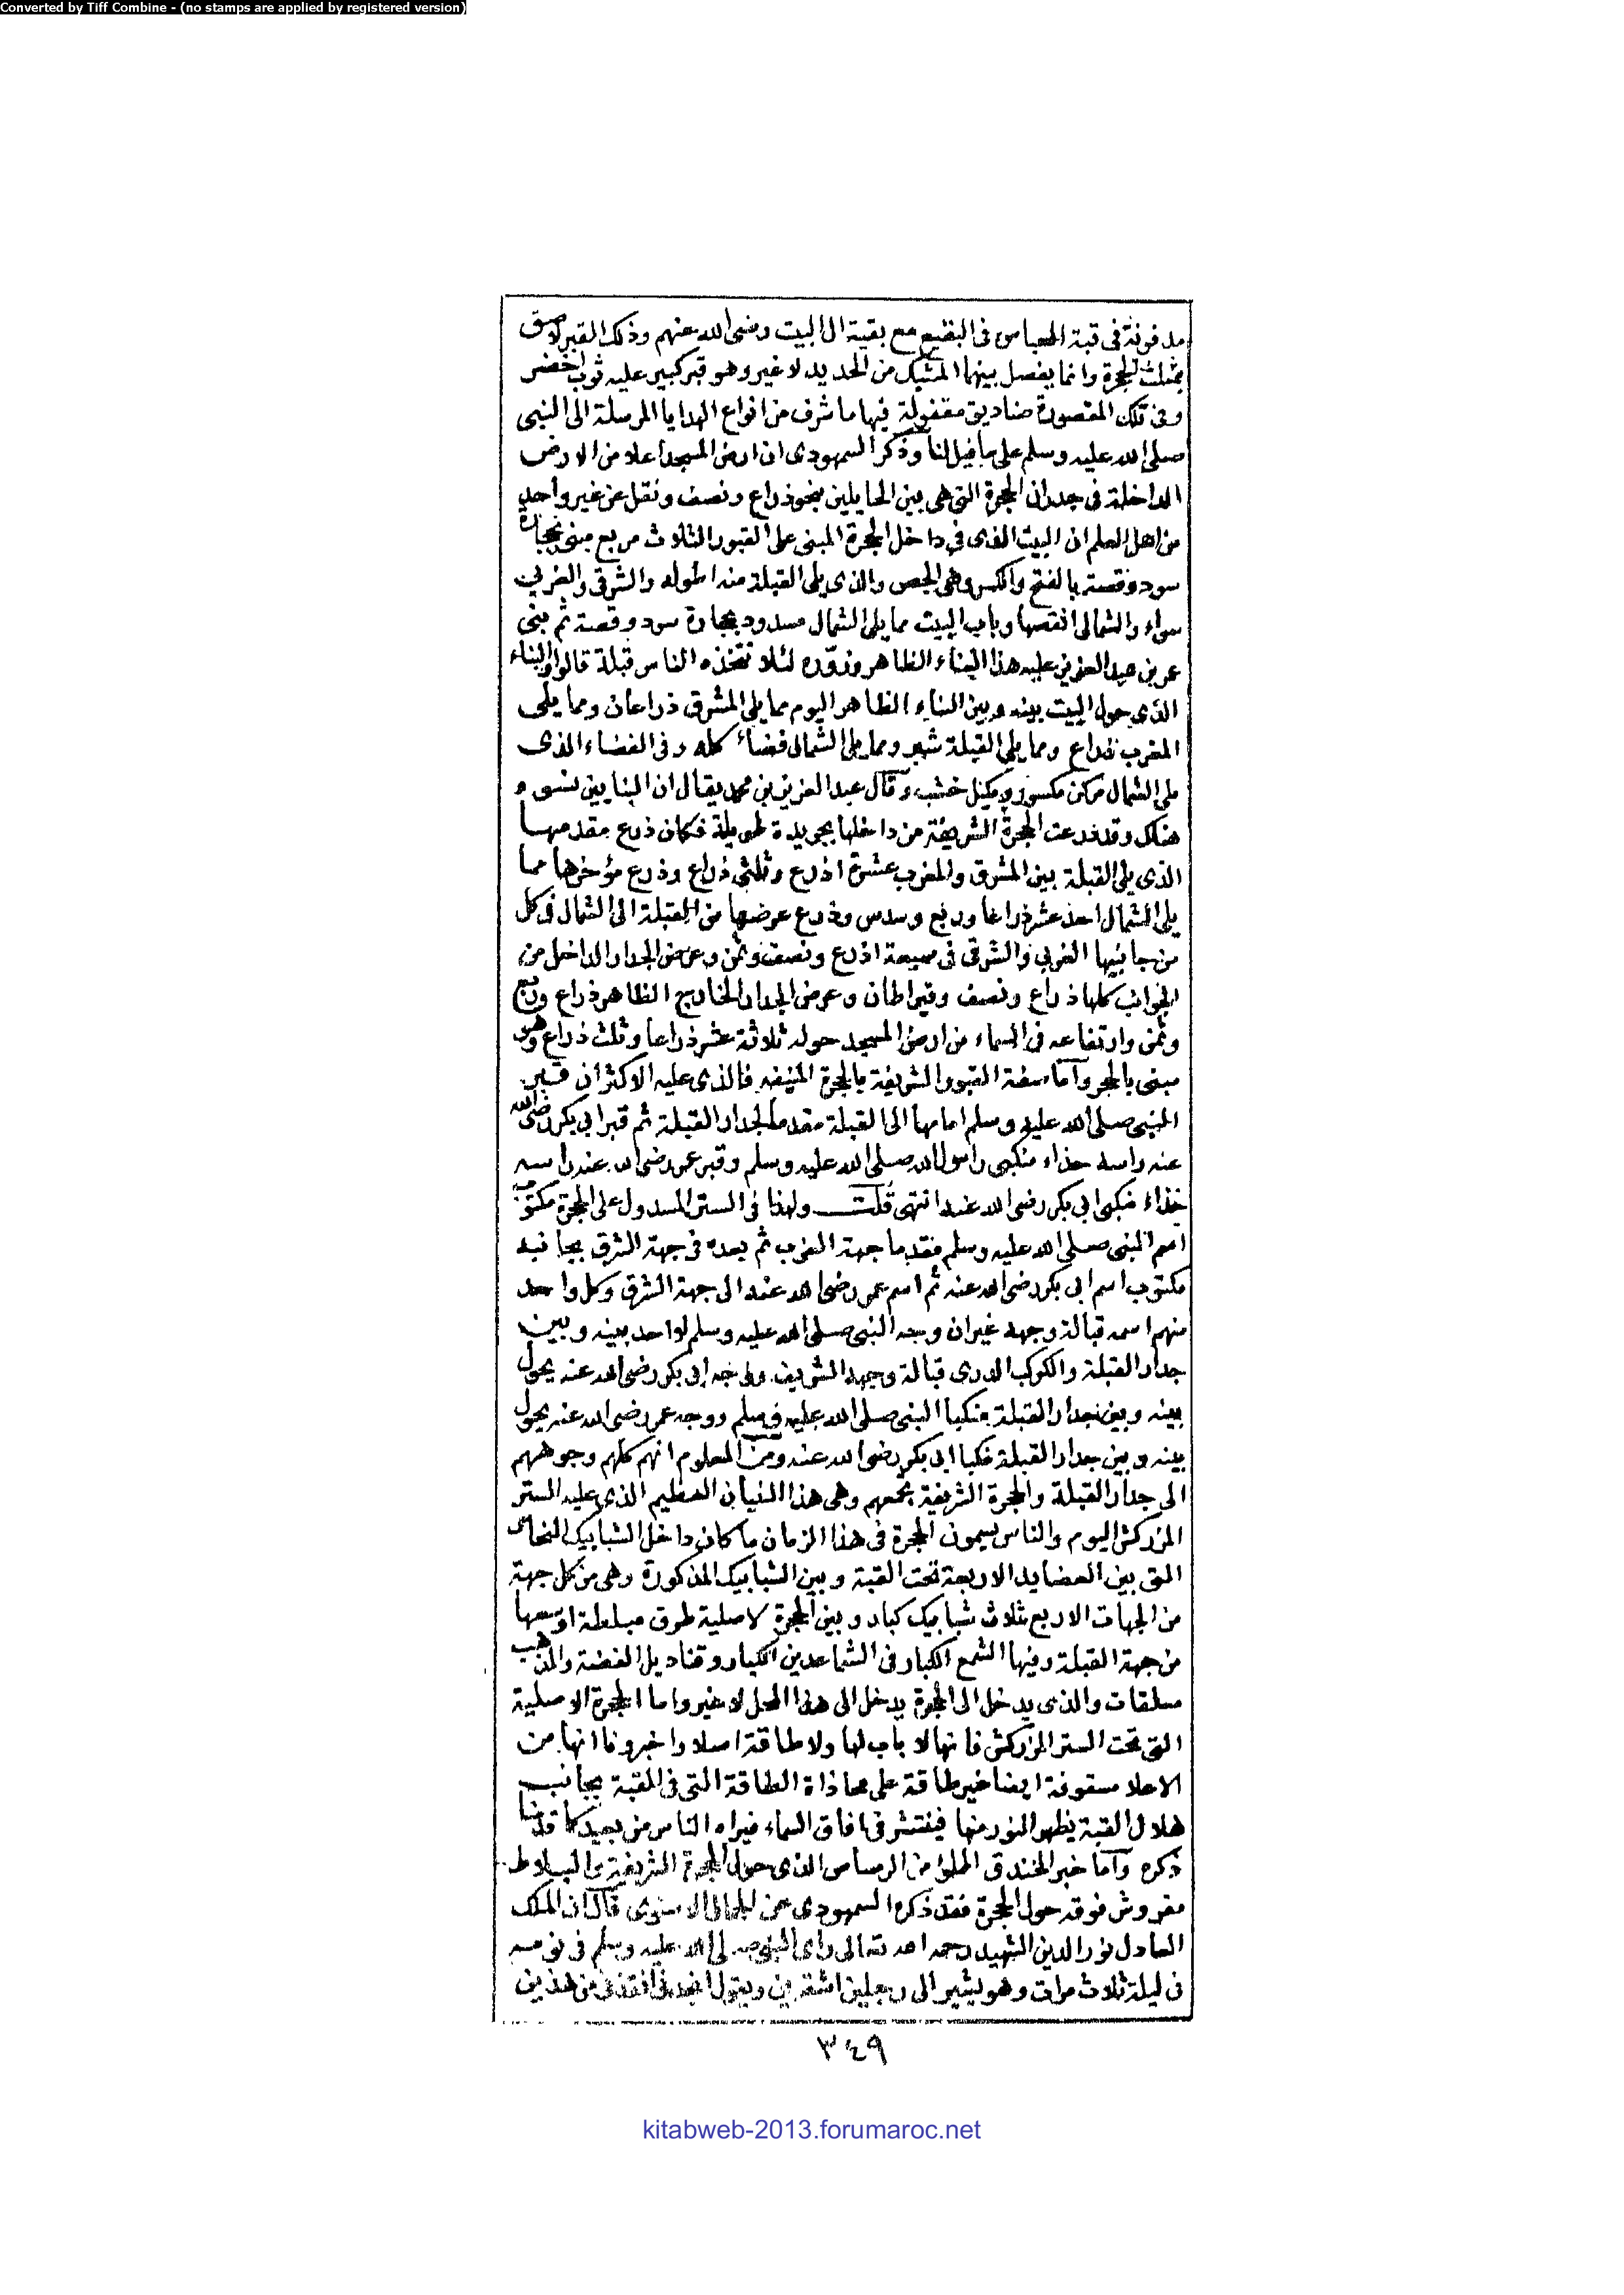 Converted by Tiff Combine - (no stamps are applied by registered version)
مدفونة فى قبة العباس فى البقيع مع بقية ال البيت رضى الله عنهم وذلك القبر لاصق
بمثلث الحجرة وانما يفصل بينها المشبك من الحديد لا غير وهو قبر كبير عليه ثوب اخضر
وفى تلك المقصورة صناديق مقفولة فيها ما شرف من انواع الهدايا المرسلة الى النبى
صلى الله عليه وسلم على ما قيل لنا وذكر السمهودى ان ارض المسجد اعلا من الارض
الداخلة فى جدران الحجرة التى هى بين الحايلين بنحو ذراع ونصف ونقل عن غير واحد
من اهل العلم ان البيت الذى فى داخل الحجرة المبنى على القبور الثلاث مربع مبنى بحجارة
سود وقصة بالفتح والكسر وهى الجص والذى يلى القبلة منه اطوله والشرقى والغربى
سواء والشمالى انقصها وباب البيت مما يلى الشمال مسدود بحجارة سود وقصة ثم بنى
عمر بن عبد العزيز عليه هذا البناء الظاهر وزوّره لئلا تتخذه الناس قبلة قالوا والبناء
الذى حول البيت بينه وبين البناء الظاهر اليوم مما يلى المشرق ذراعان ومما يلى
المغرب ذراع ومما يلى القبلة شبر ومما يلى الشمال فضاء كله وفى الفضاء الذى
يلى الشمال مركن مكسور ومكتل خشب وقال عبد العزيز بن محمد يقال ان البنايين نسوه
هناك وقد ذرعت الحجرة الشريفة من داخلها بجريدة طويلة فكان ذرع مقدمها
الذى يلى القبلة بين المشرق والمغرب عشرة اذرع وثلثى ذراع وذرع مؤخرها مما
يلى الشمال احد عشر ذراعا وربع وسدس وذرع عرضها من القبلة الى الشمال فى كل
من جانبيها الغربى والشرقى فى سبعة اذرع ونصف وثمن وعرض الجدار الداخل من
الجوانب كلها ذراع ونصف وقيراطان وعرض الجدار الخارج الظاهر ذراع وربع
وثمن وارتفاعه فى السماء من ارض المسجد حوله ثلاثة عشر ذراعا وثلث ذراع وهو
مبنى بالحجر وأما صفة القبور الشريفة بالحجرة المنيفه فالذى عليه الاكثر ان قبر
النبى صلى الله عليه وسلم امامها الى القبلة مقدما لجدار القبلة ثم قبر ابى بكر رضى الله
عنه راسه حذاء منكبى راسول الله صلى الله عليه وسلم وقبر عمر رضى الله عنه راسه
حذاء منكبى ابى بكر رضى الله عنه انتهى قلت ولهذا فى الستر المسدول على الحجرة مكتوب
اسم النبى صلى الله عليه وسلم مقدما جهة الغرب ثم بعده فى جهة الشرق بجانبه
مكتوب اسم ابى بكر رضى الله عنه ثم اسم عمر رضى الله عنه الى جهة الشرق وكل واحد
منهم اسمه قبالة وجهه غير ان وجه النبى صلى الله عليه وسلم لا احد بينه وبين
جدار القبلة والكوكب الدرى قبالة وجهه الشريف ووجه ابى بكر رضى الله عنه يحول
بينه وبين جدار القبلة منكبا النبى صلى الله عليه وسلم ووجه عمر رضى الله عنه يحول
بينه وبين جدار القبلة منكبا ابى بكر رضى الله عنه ومن المعلوم انهم كلهم وجوههم
الى جدار القبلة والحجرة الشريفة تجمعهم وهى هذا البنيان العظيم الذى عليه الستر
المزركش اليوم والناس يسمون الحجرة فى هذا الزمان ما كان داخل الشبابيك النحاس
التى بين العضايد الاربعة تحت القبة وبين الشبابيك المذكورة وهى من كل جهة
من الجهات الاربع ثلاث شبابيك كبار وبين الحجرة لاصلية طرق مبلطة اوسعها
من جهة القبلة وفيها الشمع الكبار فى الشماعدين الكبار وقناديل الفضة والذهب
معلقات والذى يدخل الى الحجرة يدخل الى هذا المحل لا غير واما الحجرة الاصلية
التى تحت الستر المزركش فانها لا باب لها ولا طاقة اصلا واخبرونا انها من
الاعلا مسقوفة ايضا غير طاقة على محاذاة الطاقة التى فى القبة بجانب
هلال القبة يظهر النور منها فينتشر فى افاق السماء فيراه الناس من بعيد كما قدمنا
ذكره وأما خبر الخندق المملؤ من الرصاص الذى حول الحجرة الشريفة والبلاط
مفروش فوقه حول الحجرة فقد ذكره السمهودى عن الجمال الاسنوى قال ان الملك
العادل نور الدين الشهيد رحمه الله تعالى راى النبى صلى الله عليه وسلم فى نومه
فى ليلة ثلاث مرات وهو يشير الى رجلين اشقرين ويقول انجدنى انقذنى من هذين
٣٤٩
kitabweb-2013.forumaroc.net